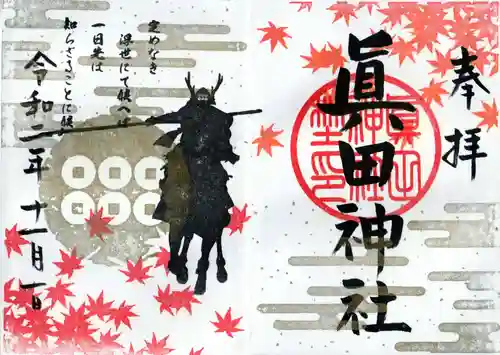 奉拝
眞田神社
定めなき
浮世にて候へば
一日先は
知らざることに候
令和二年十一月一日